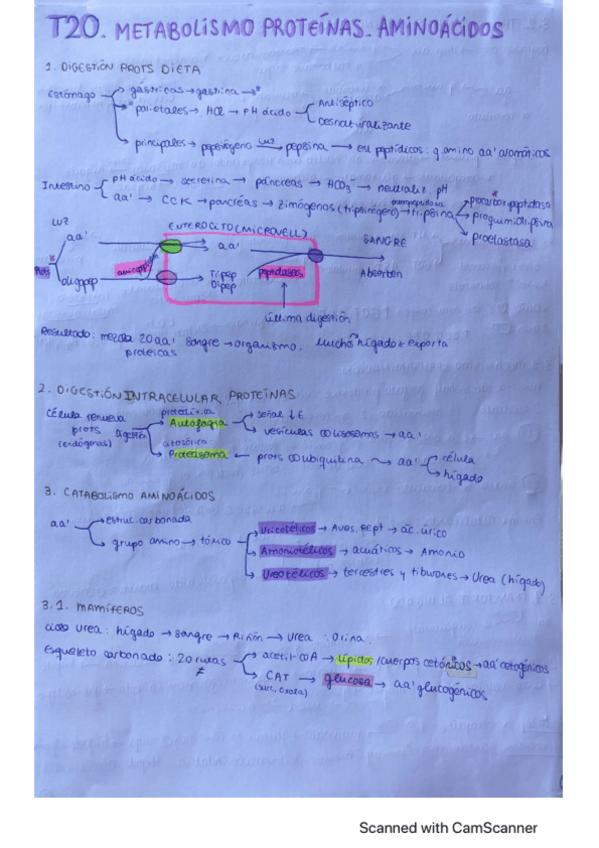 T20. METABOLISMO PROTEÍNAS. AMINOÁCIDOS
1. DIGESTIÓN PROTS DIETA
Estómago → gástricas → gastrina → *
* parietales → HCl → pH ácido → Antiséptico
Desnaturalizante
principales → pepsinógeno luz → pepsina → eu peptídicos: g. amino aa' aromáticos
Intestino → pH ácido → secretina → páncreas → HCO3 → neutraliz. pH
aa' → CCK → páncreas → zimógenos (tripsinógeno) → tripsina → procarboxipeptidasa
proquimotripsina
proelastasa
LUZ ENTEROCITO (MICROVELL) SANGRE
Prots aa' aa' Absorben
oligopep Tripep
Dipep peptidasas
última digestión
Resultado: mezcla 20aa' sangre → organismo. Mucho hígado + exporta
proteicas
2. DIGESTIÓN INTRACELULAR PROTEÍNAS
célula renueva
prots
(endógenas) digestión
Autofagia → señal ↓E
vesículas lisosomas → aa'
Proteasoma ← prots ubiquitina → aa' → célula
hígado
3. CATABOLISMO AMINOÁCIDOS
aa' → estruc. carbonada
grupo amino → tóxico → Uricotélicos → Aves, rept → ác. úrico
Amoniotélicos → acuáticos → Amonio
Ureotélicos → terrestres y tiburones → Urea (hígado)
3.1. MAMÍFEROS
ciclo urea: hígado → sangre → Riñón → Urea: Orina.
Esqueleto carbonado: 20 rutas ≠ → acetil-coA → Lípidos/cuerpos cetónicos → aa' cetogénicos
CAT → glucosa → aa' glucogénicos
Scanned with CamScanner